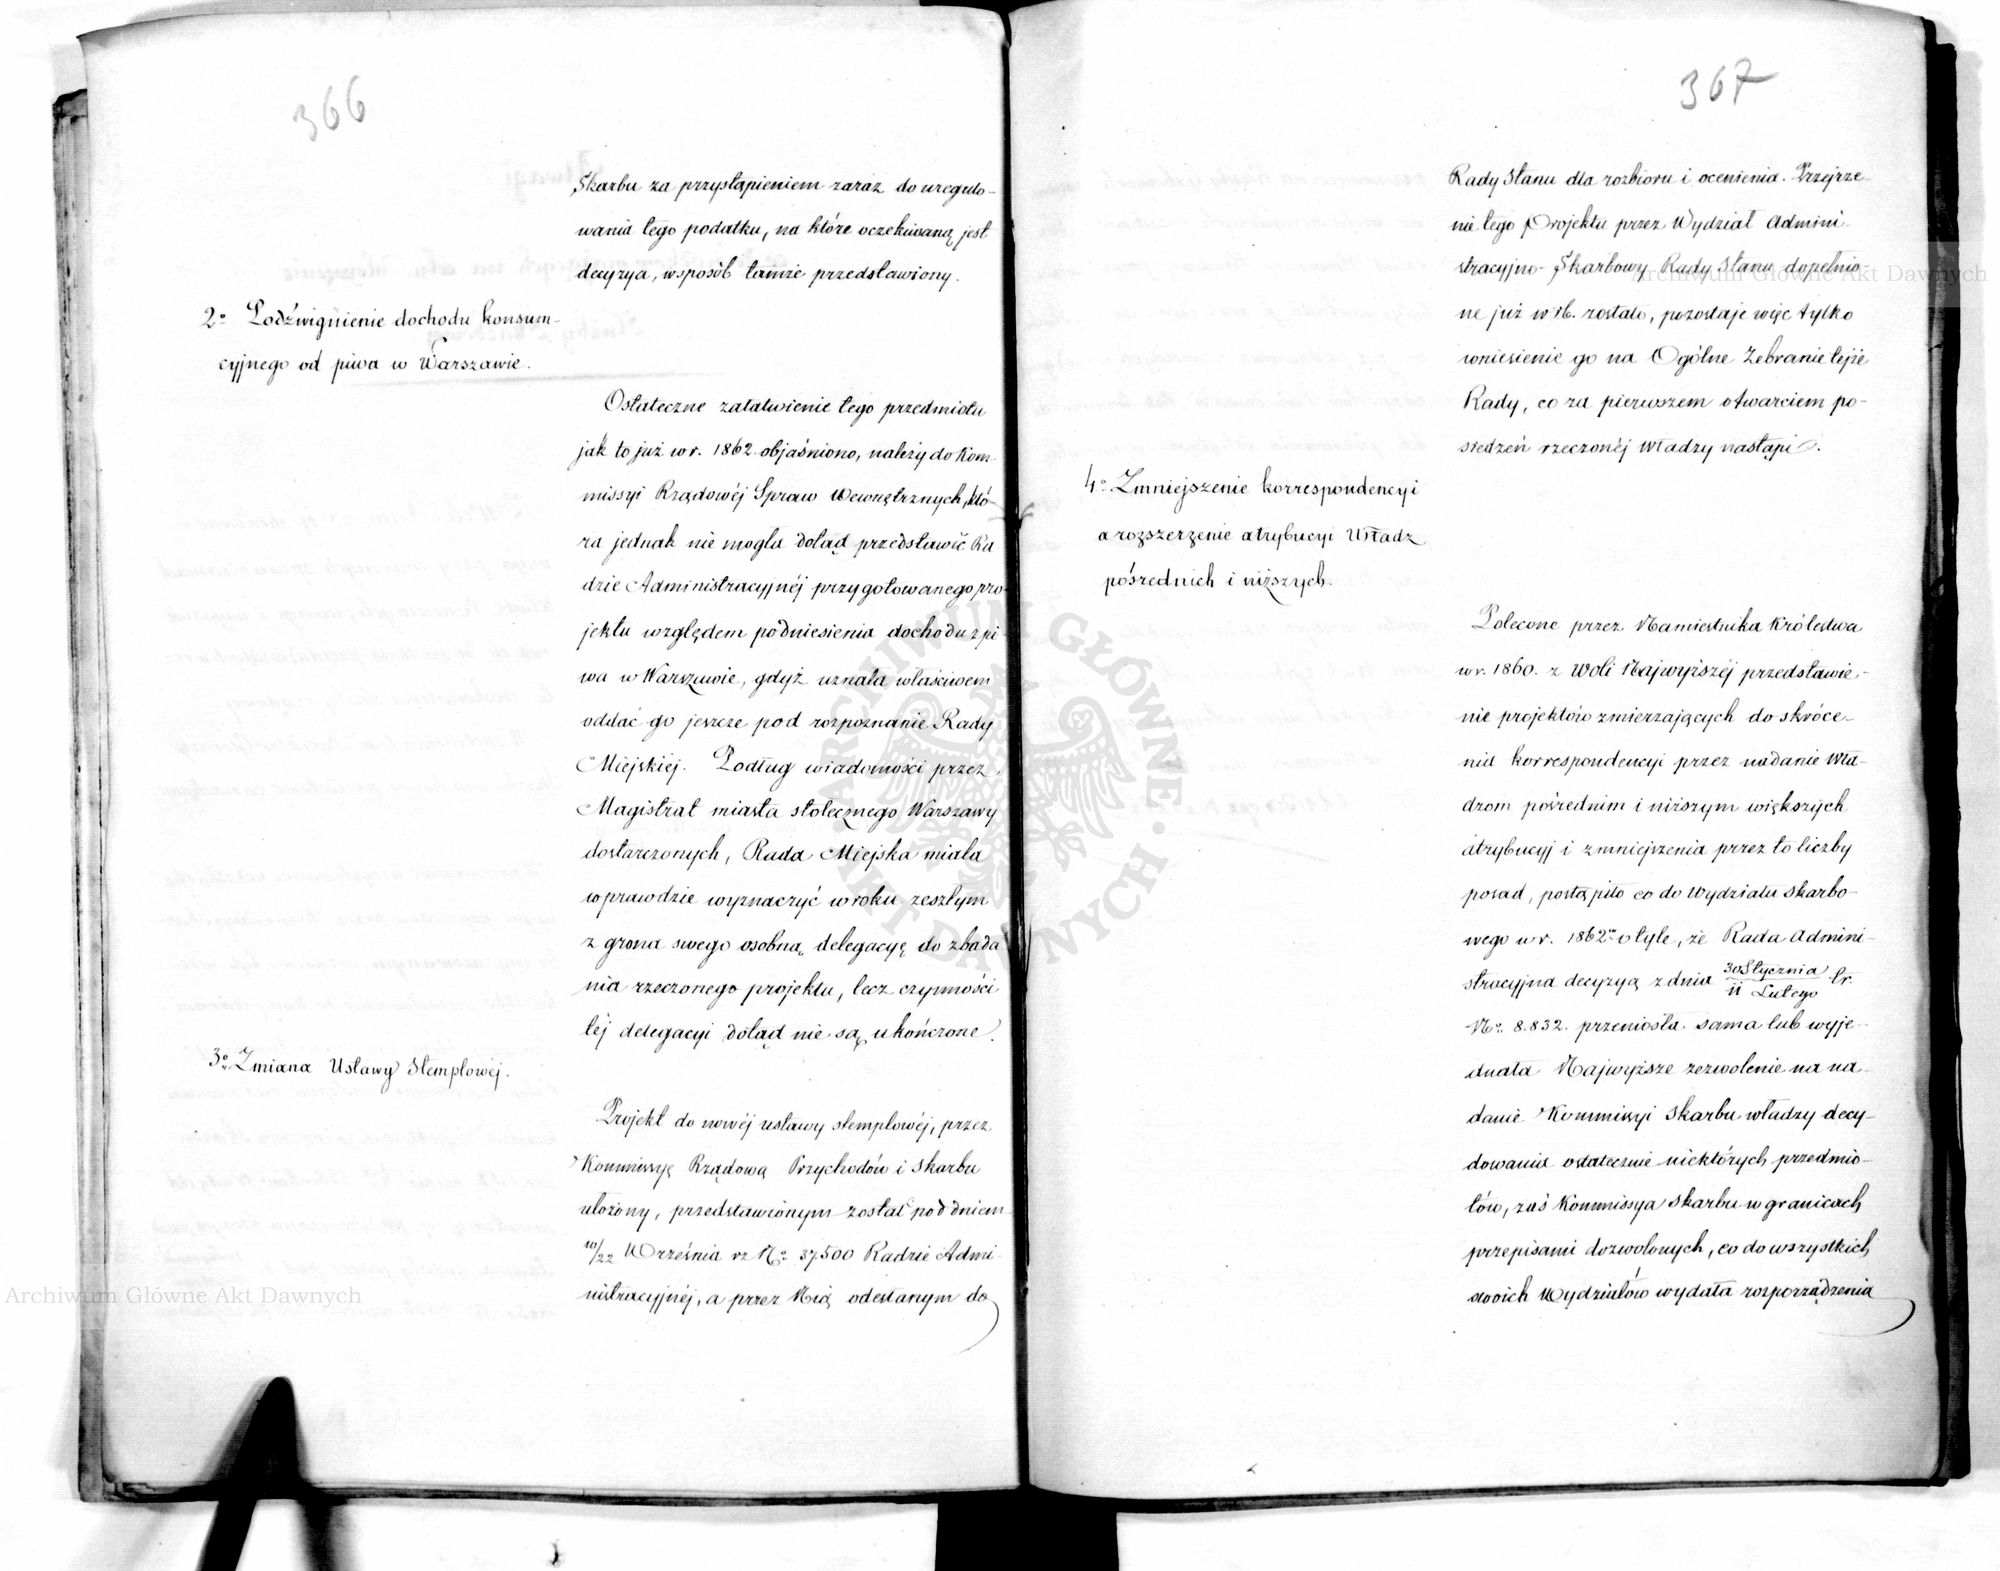 366
Skarbu za przystąpieniem zaraz do uregulo-
wania tego podatku, na które oczekiwaną jest
decyzya, wsposób tamże przedstawiony.
2o Podźwignienie dochodu konsum-
cyjnego od piwa w Warszawie.
Ostateczne załatwienie tego przedmiotu
jak to już w r. 1862 objaśniono, należy do Kom-
missyi Rządowéj Spraw Wewnętrznych, któ-
ra jednak nie mogła dotąd przedstawić Ra
dzie Administracyjnéj przygotowanego pro-
jektu względem podniesienia dochodu z pi
wa w Warszawie, gdyż uznała właściwem
oddać go jeszcze pod rozpoznanie Rady
Miejskiej. Podług wiadomości przez
Magistrat miasta stołecznego Warszawy
dostarczonych, Rada Miejska miała
wprawdzie wyznaczyć w roku zeszłym
z grona swego osobną delegacyę do zbada
nia rzeczonego projektu, lecz czynności
téj delegacyi dotąd nie są ukończone.
3o Zmiana Ustawy Stemplowéj.
Projekt do nowéj ustawy stemplowéj, przez
Kommissyę Rządową Przychodów i Skarbu
ułożony, przedstawionym został pod dniem
10/22 Września rz No 37,500 Radzie Admi-
nistracyjnéj, a przez Nią odesłanym do
367
Rady Stanu dla rozbioru i ocenienia. Przejrze-
nie tego Projektu przez Wydział Admini-
stracyjno-Skarbowy Rady Stanu dopełnio-
ne już w rb. zostało, pozostaje więc tylko
wniesienie go na Ogólne Zebranie tejże
Rady, co za pierwszem otwarciem po-
siedzeń rzeczonéj Władzy nastąpi.
4o Zmniejszenie korrespondencyi
a rozszerzenie atrybucyi Władz
pośrednich i niższych.
Polecone przez Namiestnika Królestwa
w r. 1860. z Woli Najwyższéj przedstawie-
nie projektów zmierzających do skróce-
nia korrespondencyi przez nadanie Wła-
dzom pośrednim i niższym większych
atrybucyj i zmniejszenia przez to liczby
posad, postąpiło co do Wydziału Skarbo-
wego w r. 1862 o tyle, że Rada Admini-
stracyjna decyzyą z dnia 30 Stycznia/11 Lutego t.r.
No 8.832. przeniosła sama lub wyje-
dnała Najwyższe zezwolenie na na-
danie Kommissyi Skarbu władzy decy-
dowania ostatecznie niektórych przedmio-
tów, zaś Kommissya Skarbu w granicach
przepisami dozwolonych, co do wszystkich
swoich Wydziałów wydała rozporządzenia
Archiwum Główne Akt Dawnych
Archiwum Główne Akt Dawnych
ARCHIWUM GŁÓWNE AKT DAWNYCH